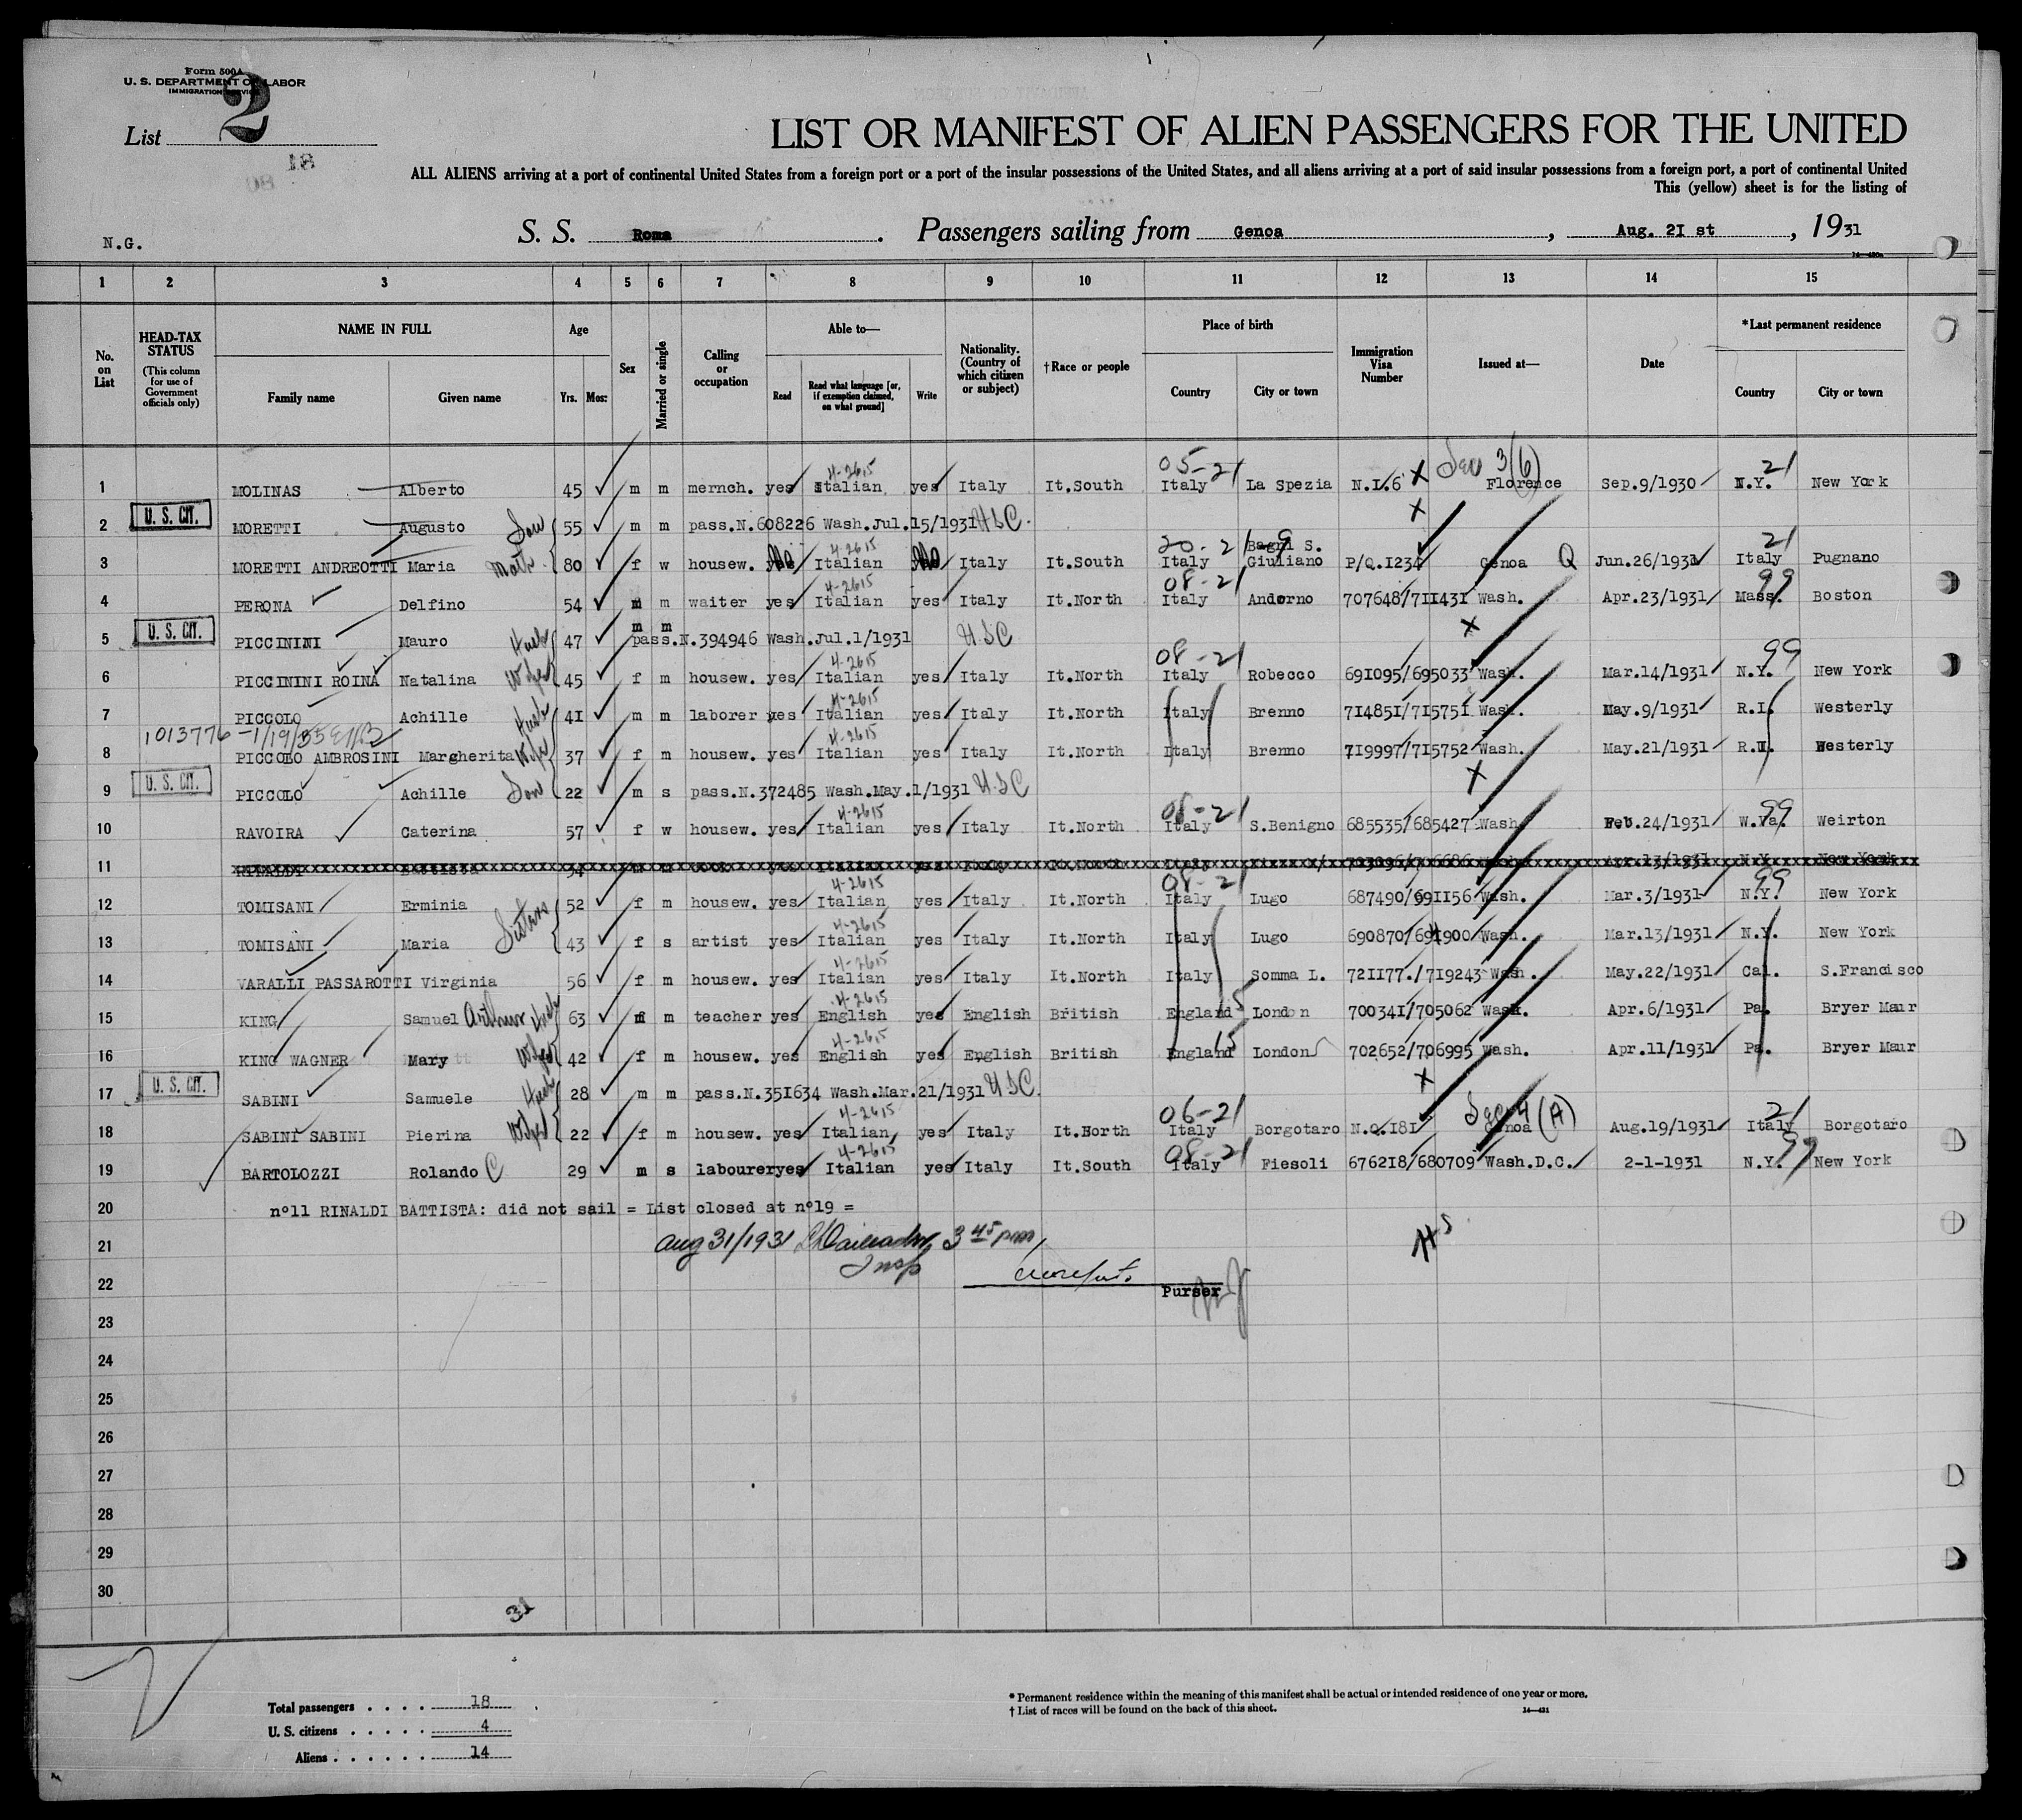 Form 500A
U. S. DEPARTMENT OF LABOR
IMMIGRATION SERVICE
List 2
18
LIST OR MANIFEST OF ALIEN PASSENGERS FOR THE UNITED
ALL ALIENS arriving at a port of continental United States from a foreign port or a port of the insular possessions of the United States, and all aliens arriving at a port of said insular possessions from a foreign port, a port of continental United
This (yellow) sheet is for the listing of
N.G.
S. S. Roma. Passengers sailing from Genoa, Aug. 2I st, 1931
1 2 3 4 5 6 7 8 9 10 11 12 13 14 15
No. on List
HEAD-TAX STATUS (This column for use of Government officials only)
NAME IN FULL Family name Given name
Age Yrs. Mos.
Sex
Married or single
Calling or occupation
Able to— Read Read what language [or, if exemption claimed, on what ground] Write
Nationality. (Country of which citizen or subject)
†Race or people
Place of birth Country City or town
Immigration Visa Number
Issued at—
Date
*Last permanent residence Country City or town
4-2615 05-21 Sec 3(6) 21
1 MOLINAS Alberto 45 m m mernch. yes Italian yes Italy It.South Italy La Spezia N.I.6 X Florence Sep.9/1930 N.Y. New York
2 U. S. CIT. MORETTI Augusto Son 55 m m pass.N.608226 Wash.Jul.15/1931 USC. X
4-2615 20-21 Bagni S. 21
3 MORETTI ANDREOTTI Maria Moth. 80 f w housew. No Italian No Italy It.South Italy Giuliano P/Q.1234 Genoa Q Jun.26/1931 Italy Pugnano
4-2615 08-21 99
4 PERONA Delfino 54 m m waiter yes Italian yes Italy It.North Italy Andorno 707648/7II43I Wash. Apr.23/1931 Mass. Boston
5 U. S. CIT. PICCININI Mauro Husb 47 m m pass.N.394946 Wash.Jul.1/1931 USC X
4-2615 08-21 99
6 PICCININI ROINA Natalina Wife 45 f m housew. yes Italian yes Italy It.North Italy Robecco 69I095/695033 Wash. Mar.14/1931 N.Y. New York
4-2615
7 PICCOLO Achille Husb 4I m m laborer yes Italian yes Italy It.North Italy Brenno 7I485I/7I575I Wash. May.9/1931 R.I. Westerly
1013776 -1/19/35 4-2615
8 PICCOLO AMBROSINI Margherita Wife 37 f m housew. yes Italian yes Italy It.North Italy Brenno 7I9997/7I5752 Wash. May.21/1931 R.I. Westerly
9 U. S. CIT. PICCOLO Achille Son 22 m s pass.N.372485 Wash.May.1/1931 USC X
4-2615 08-21 99
10 RAVOIRA Caterina 57 f w housew. yes Italian yes Italy It.North Italy S.Benigno 685535/685427 Wash. Feb.24/1931 W.Va. Weirton
11
4-2615 08-21 99
12 TOMISANI Erminia Sisters 52 f m housew. yes Italian yes Italy It.North Italy Lugo 687490/69II56 Wash. Mar.3/1931 N.Y. New York
4-2615
13 TOMISANI Maria 43 f s artist yes Italian yes Italy It.North Italy Lugo 690870/691900 Wash. Mar.13/1931 N.Y. New York
4-2615
14 VARALLI PASSAROTTI Virginia 56 f m housew. yes Italian yes Italy It.North Italy Somma L. 72II77./7I9243 Wash. May.22/1931 Cal. S.Francisco
4-2615
15 KING Samuel Arthur Husb 63 m m teacher yes English yes English British England 15 London 70034I/705062 Wash. Apr.6/1931 Pa. Bryer Maur
4-2615
16 KING WAGNER Mary Wife 42 f m housew. yes English yes English British England 15 London 702652/706995 Wash. Apr.11/1931 Pa. Bryer Maur
17 U. S. CIT. SABINI Samuele Husb 28 m m pass.N.35I634 Wash.Mar.21/1931 USC. X
4-2615 06-21 Sec 4 (A) 21
18 SABINI SABINI Pierina Wife 22 f m housew. yes Italian, yes Italy It.North Italy Borgotaro N.Q.I8I Genoa Aug.19/1931 Italy Borgotaro
4-2615 08-21 99
19 BARTOLOZZI Rolando C 29 m s labourer yes Italian yes Italy It.South Italy Fiesoli 6762I8/680709 Wash.D.C. 2-1-1931 N.Y. New York
20 n°11 RINALDI BATTISTA: did not sail = List closed at n°19 =
21 Aug 31/1931 3 45 pm
Insp
22
Purser
23
24
25
26
27
28
29
30
31
Total passengers . . . . 18
U. S. citizens . . . . . 4
Aliens . . . . . . 14
* Permanent residence within the meaning of this manifest shall be actual or intended residence of one year or more.
† List of races will be found on the back of this sheet.
14—431